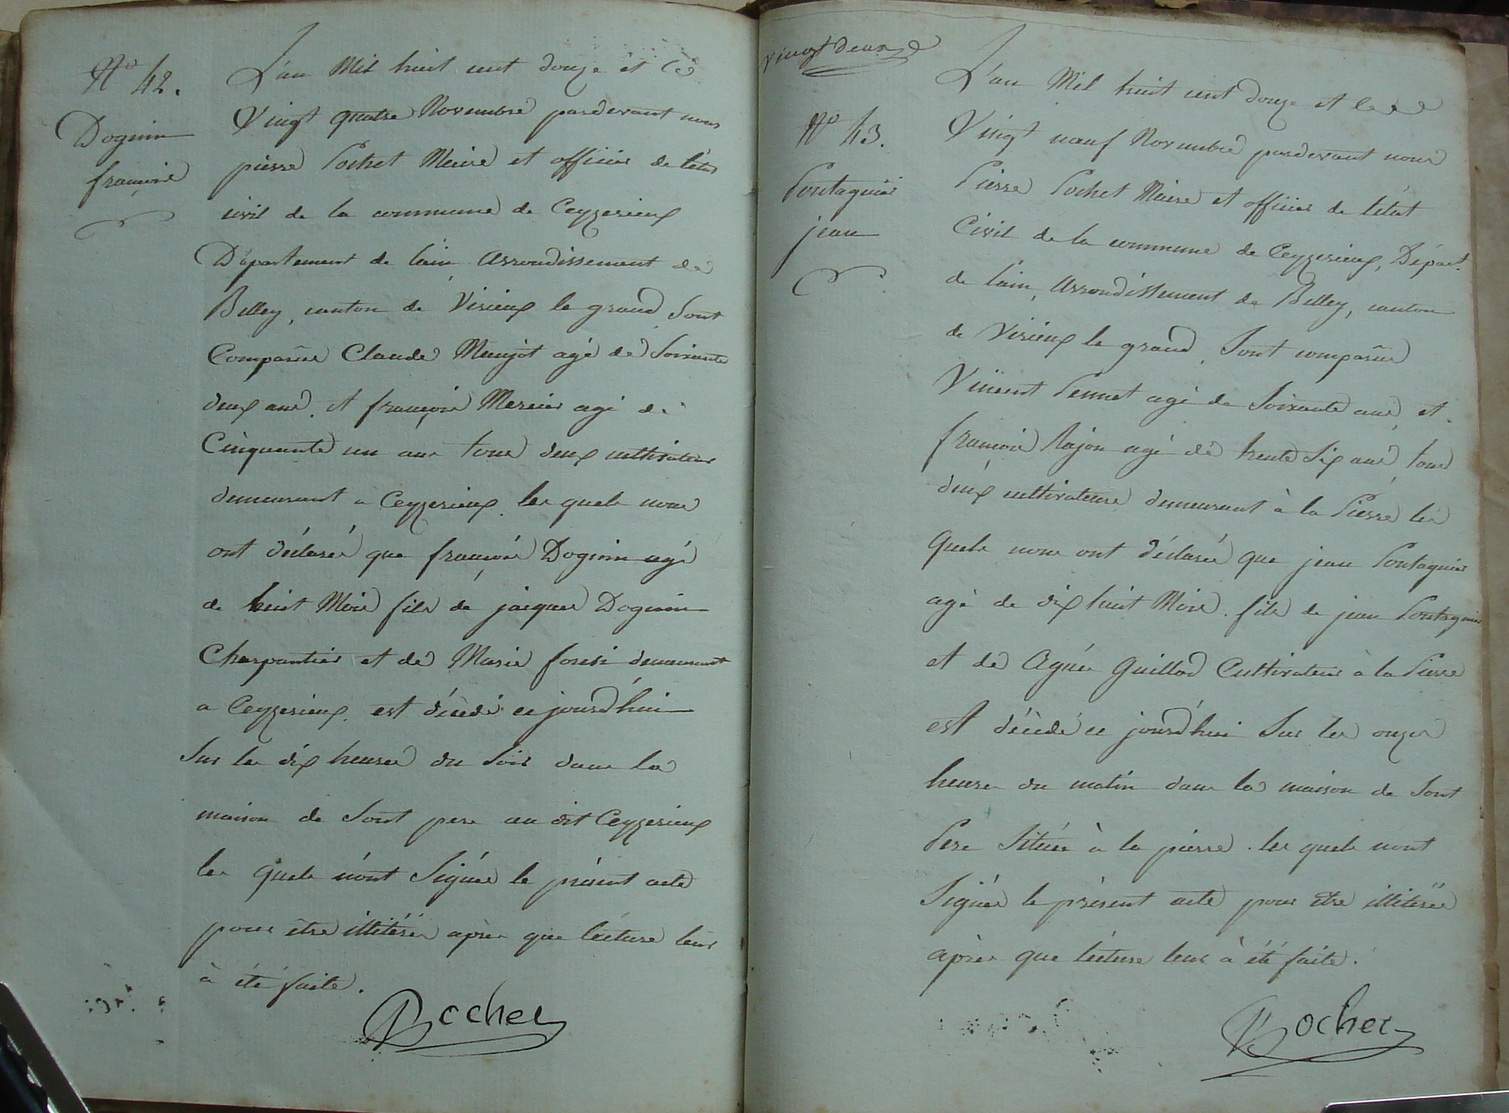 No 42.
Doguin
françois
L'an Mil huit cent douze et le
Vingt quatre Novembre pardevant nous
pierre Pochet Maire et officier de l'état
civil de la commune de Ceyzerieux
Département de l'ain arrondissement de
Belley, canton de Virieux le grand Sont
Comparus Claude Mugiot agé de Soixante
deux ans, et françois Mercier agé de
Cinquante un ans tous deux cultivateurs
demeurant a Ceyzerieux. les quels nous
ont déclaré que françois Doguin agé
de huit Mois fils de jacques Doguin
Charpentier et de Marie demeurant
a Ceyzerieux. est décédé ce jourd'hui
Sur les dix heures du Soir dans la
maison de Sont pere au dit Ceyzerieux
les quels n'ont Signés le présent acte
pour être illitérés après que lécture leur
à été faite.
Pochet
vingt deux
No 43.
Pontaguier
jean
L'an Mil huit cent douze et le
Vingt neuf Novembre pardevant nous
Pierre Pochet Maire et officier de l'état
Civil de la commune de Ceyzerieux, Départ.
de l'ain, arrondissement de Belley, canton
de Virieux le grand, Sont comparus
Vincent Pennet agé de Soixante ans, et
francois Rajon agé de trente Six ans, tous
deux cultivateurs demeurant à la Pierre les
quels nous ont déclaré que jean Pontaguier
agé de dix huit Mois. fils de jean Pontaguier
et de Agnès Guillod Cultivateur à la Pierre
est décédé ce jourd'hui Sur les onze
heures du matin dans la maison de Sont
Pere Située à la pierre. les quels nont
Signés le présent acte pour être illitérés
après que lécture leur à été faite.
Pochet